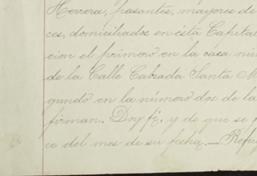 Herrera, pasantes, mayores de
ces, domiciliados en está Capital
cion el primero en la casa nú
de la Calle Cabada Santa M
gundo en la número dos de la
firman. Doy fé, y de que se p
co del mes de su fecha. — Refu